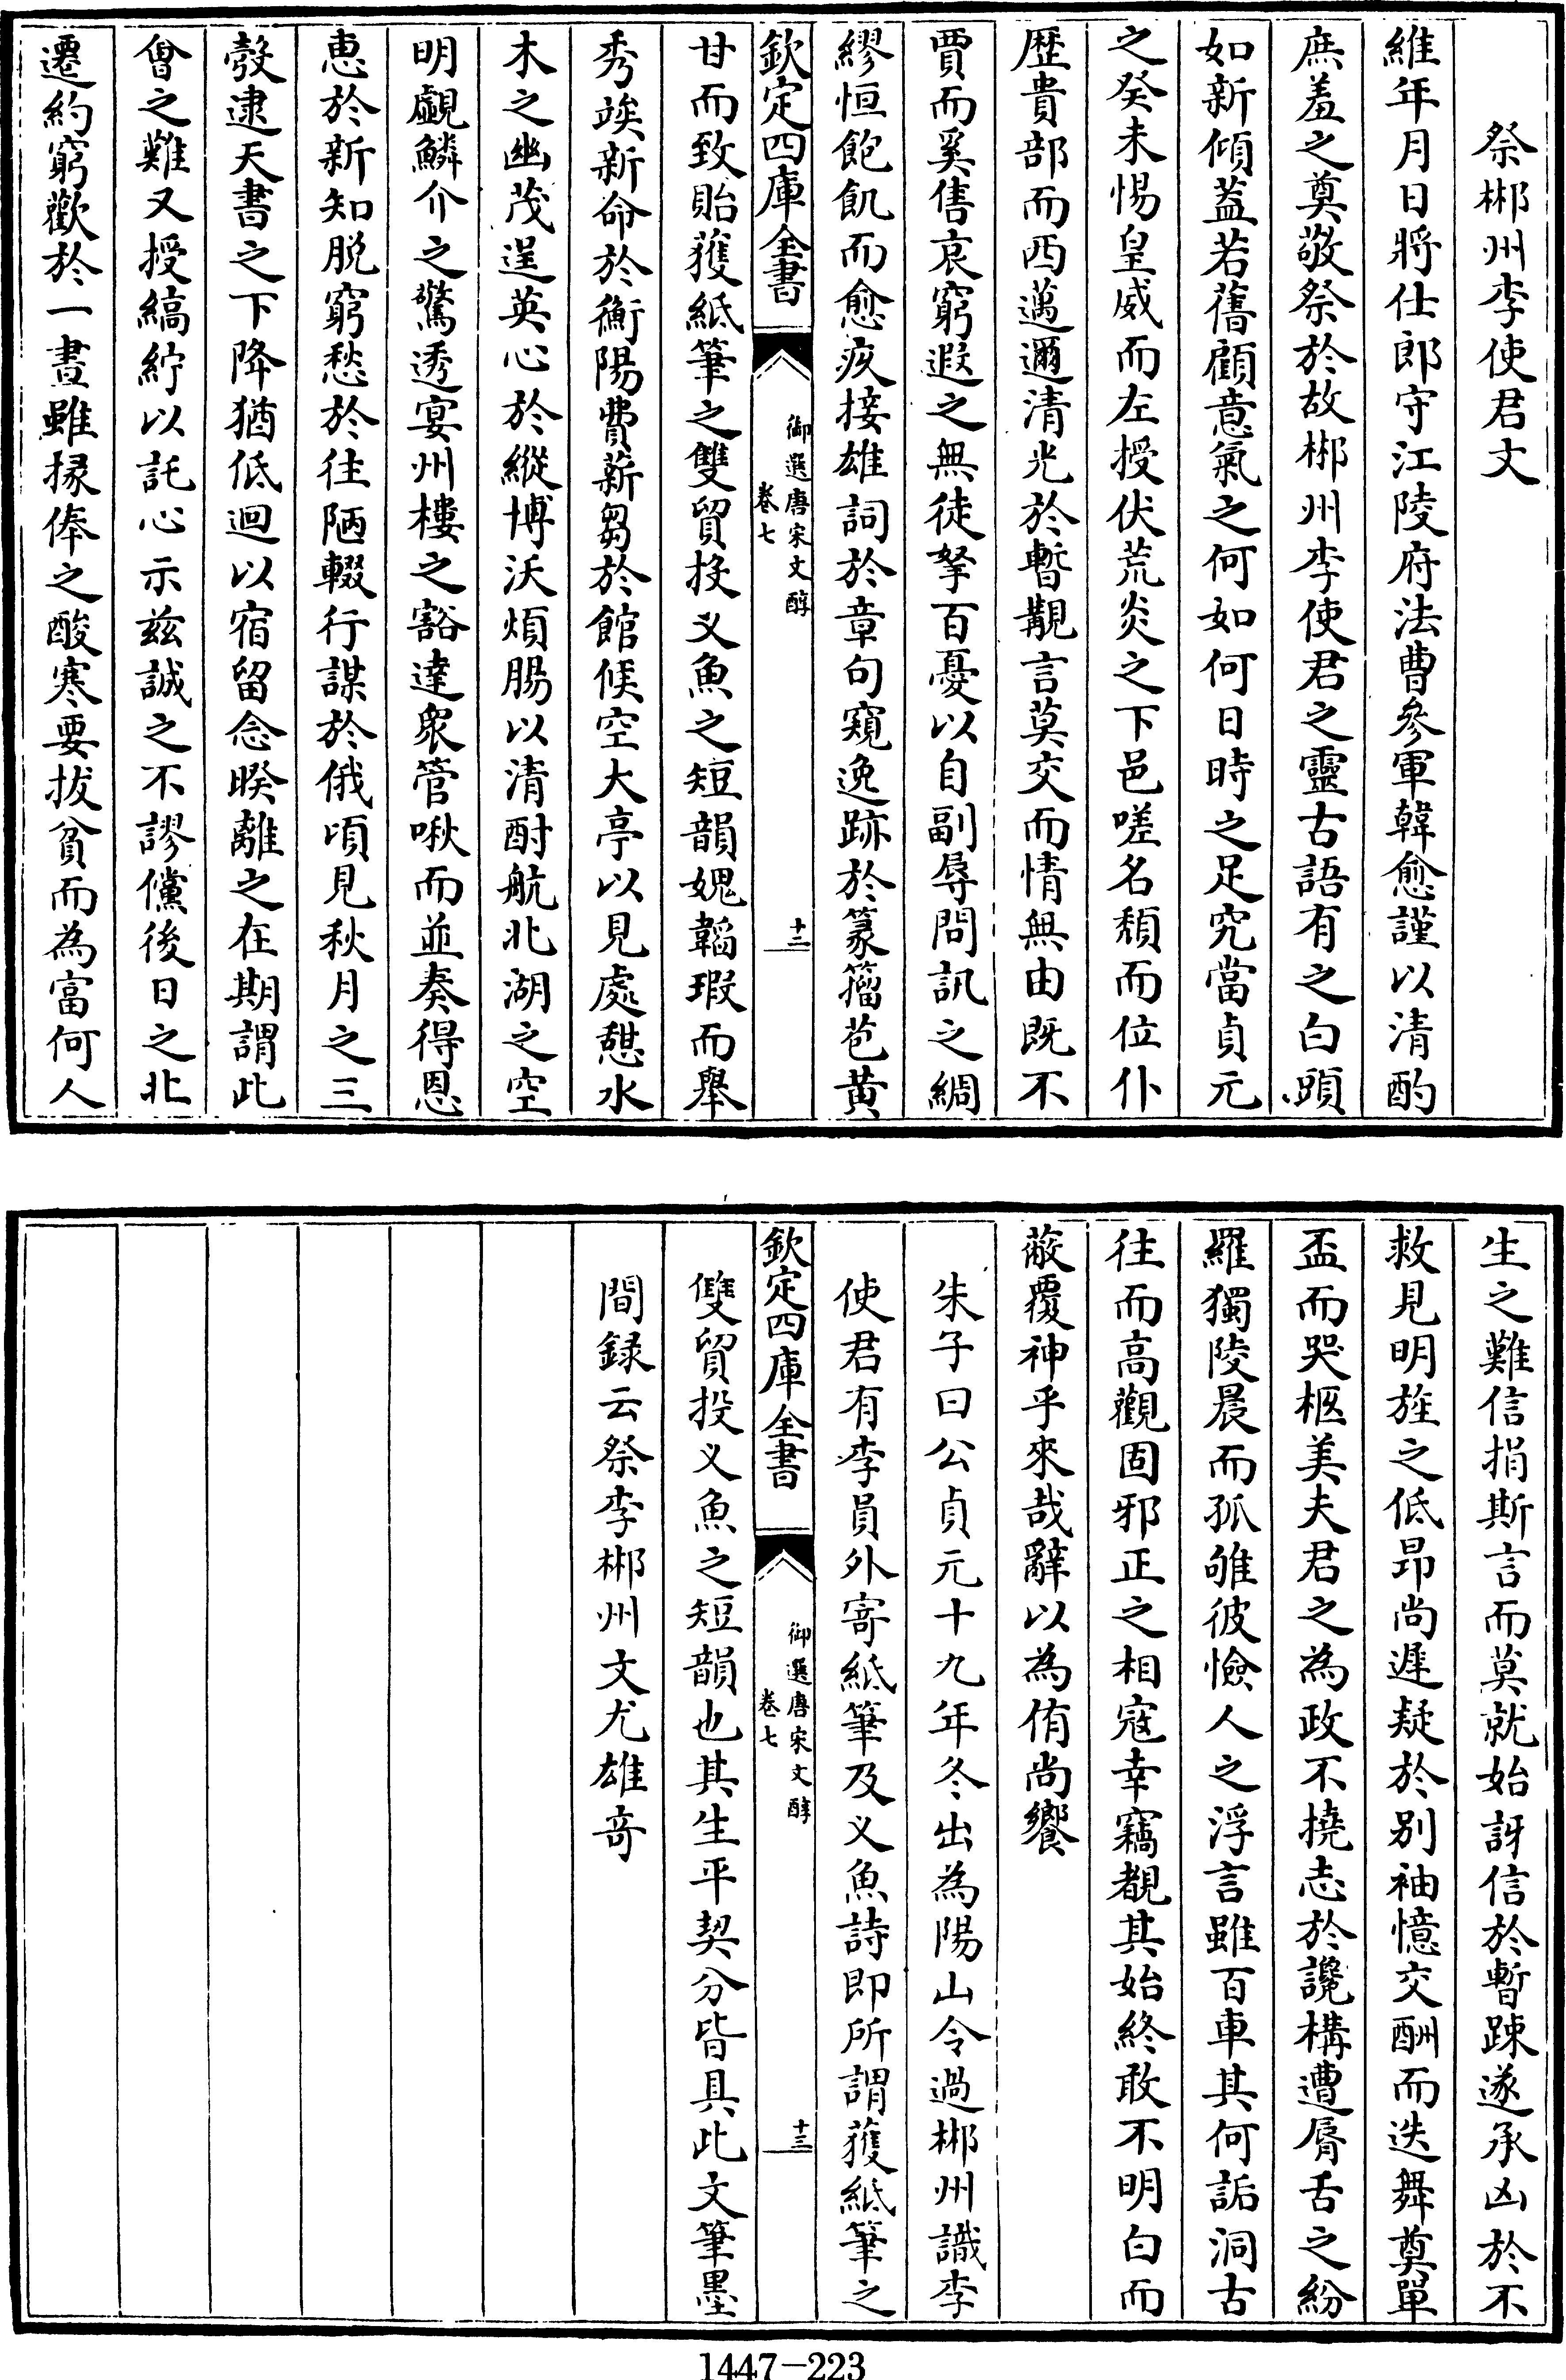 祭郴州李使君文
維年月日將仕郎守江陵府法曹參軍韓愈謹以清酌
庶羞之奠敬祭於故郴州李使君之靈古語有之白頭
如新傾蓋若舊顧意氣之何如何日時之足究當貞元
之癸未惕皇威而左授伏荒炎之下邑嗟名頹而位仆
歴貴部而西邁邇清光於暫覯言莫交而情無由既不
賈而奚售哀窮遐之無徒拏百憂以自副辱問訊之綢
繆恒飽飢而愈疚接雄詞於章句窺逸跡於篆籀苞黄
欽定四庫全書
御選唐宋文醇
卷七
十二
甘而致貽獲紙筆之雙貿投义魚之短韻媿韜瑕而舉
秀竢新命於衡陽費薪芻於館候空大亭以見處憇水
木之幽茂逞英心於縱博沃煩腸以清酎航北湖之空
明覷鱗介之驚透宴州樓之豁達衆管啾而並奏得恩
惠於新知脱窮愁於往陋輟行謀於俄頃見秋月之三
彀逮天書之下降猶低迴以宿留念暌離之在期謂此
㑹之難又授縞紵以託心示兹誠之不謬儻後日之北
遷約窮歡於一晝雖掾俸之酸寒要拔貧而為富何人
生之難信捐斯言而莫就始訝信於暫踈遂承凶於不
救見明旌之低昂尚遲疑於别袖憶交酬而迭舞奠單
盃而哭柩美夫君之為政不撓志於讒構遭脣舌之紛
羅獨陵晨而孤雊彼憸人之浮言雖百車其何詬洞古
往而高觀固邪正之相寇幸竊覩其始終敢不明白而
蔽覆神乎來哉辭以為侑尚饗
朱子曰公貞元十九年冬出為陽山令過郴州識李
使君有李員外寄紙筆及义魚詩即所謂獲紙筆之
欽定四庫全書
御選唐宋文醇
卷七
十三
雙貿投义魚之短韻也其生平契分皆具此文筆墨
間録云祭李郴州文尤雄竒
1447-223